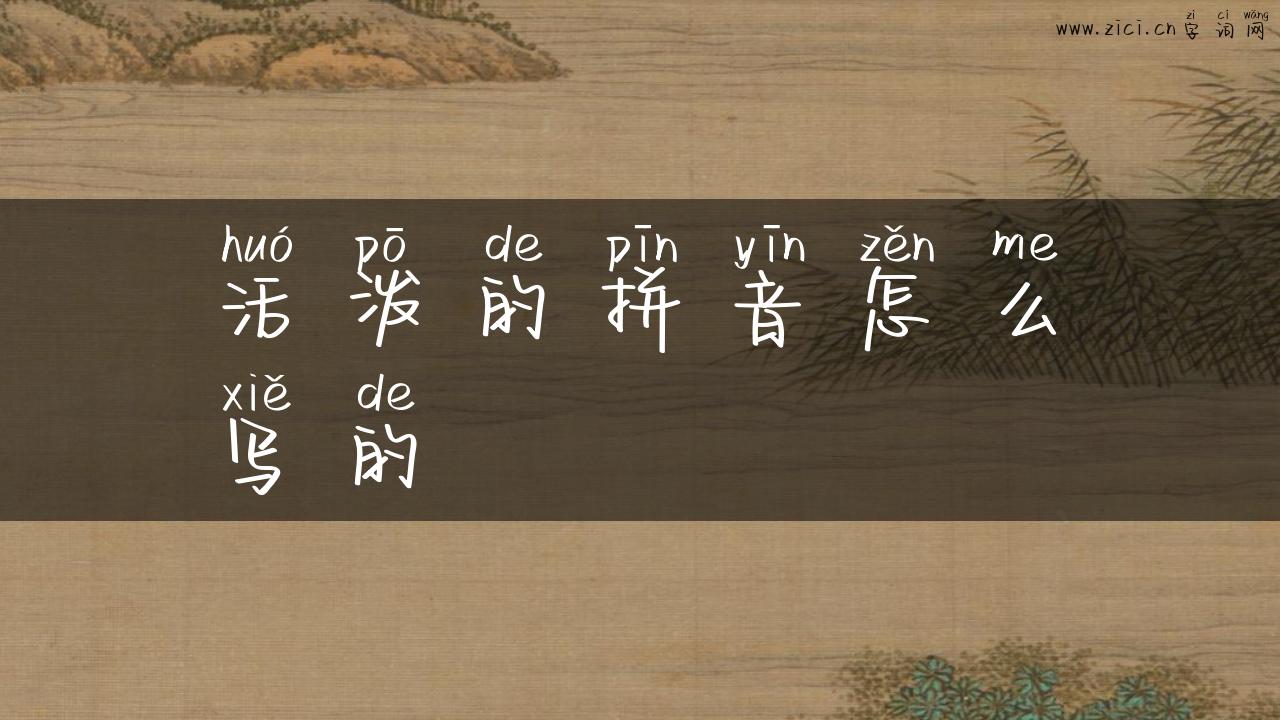 zì cí wǎng
www.zici.cn 字 词 网
huó pō de pīn yīn zěn me
活 泼 的 拼 音 怎 么
xiě de
写 的